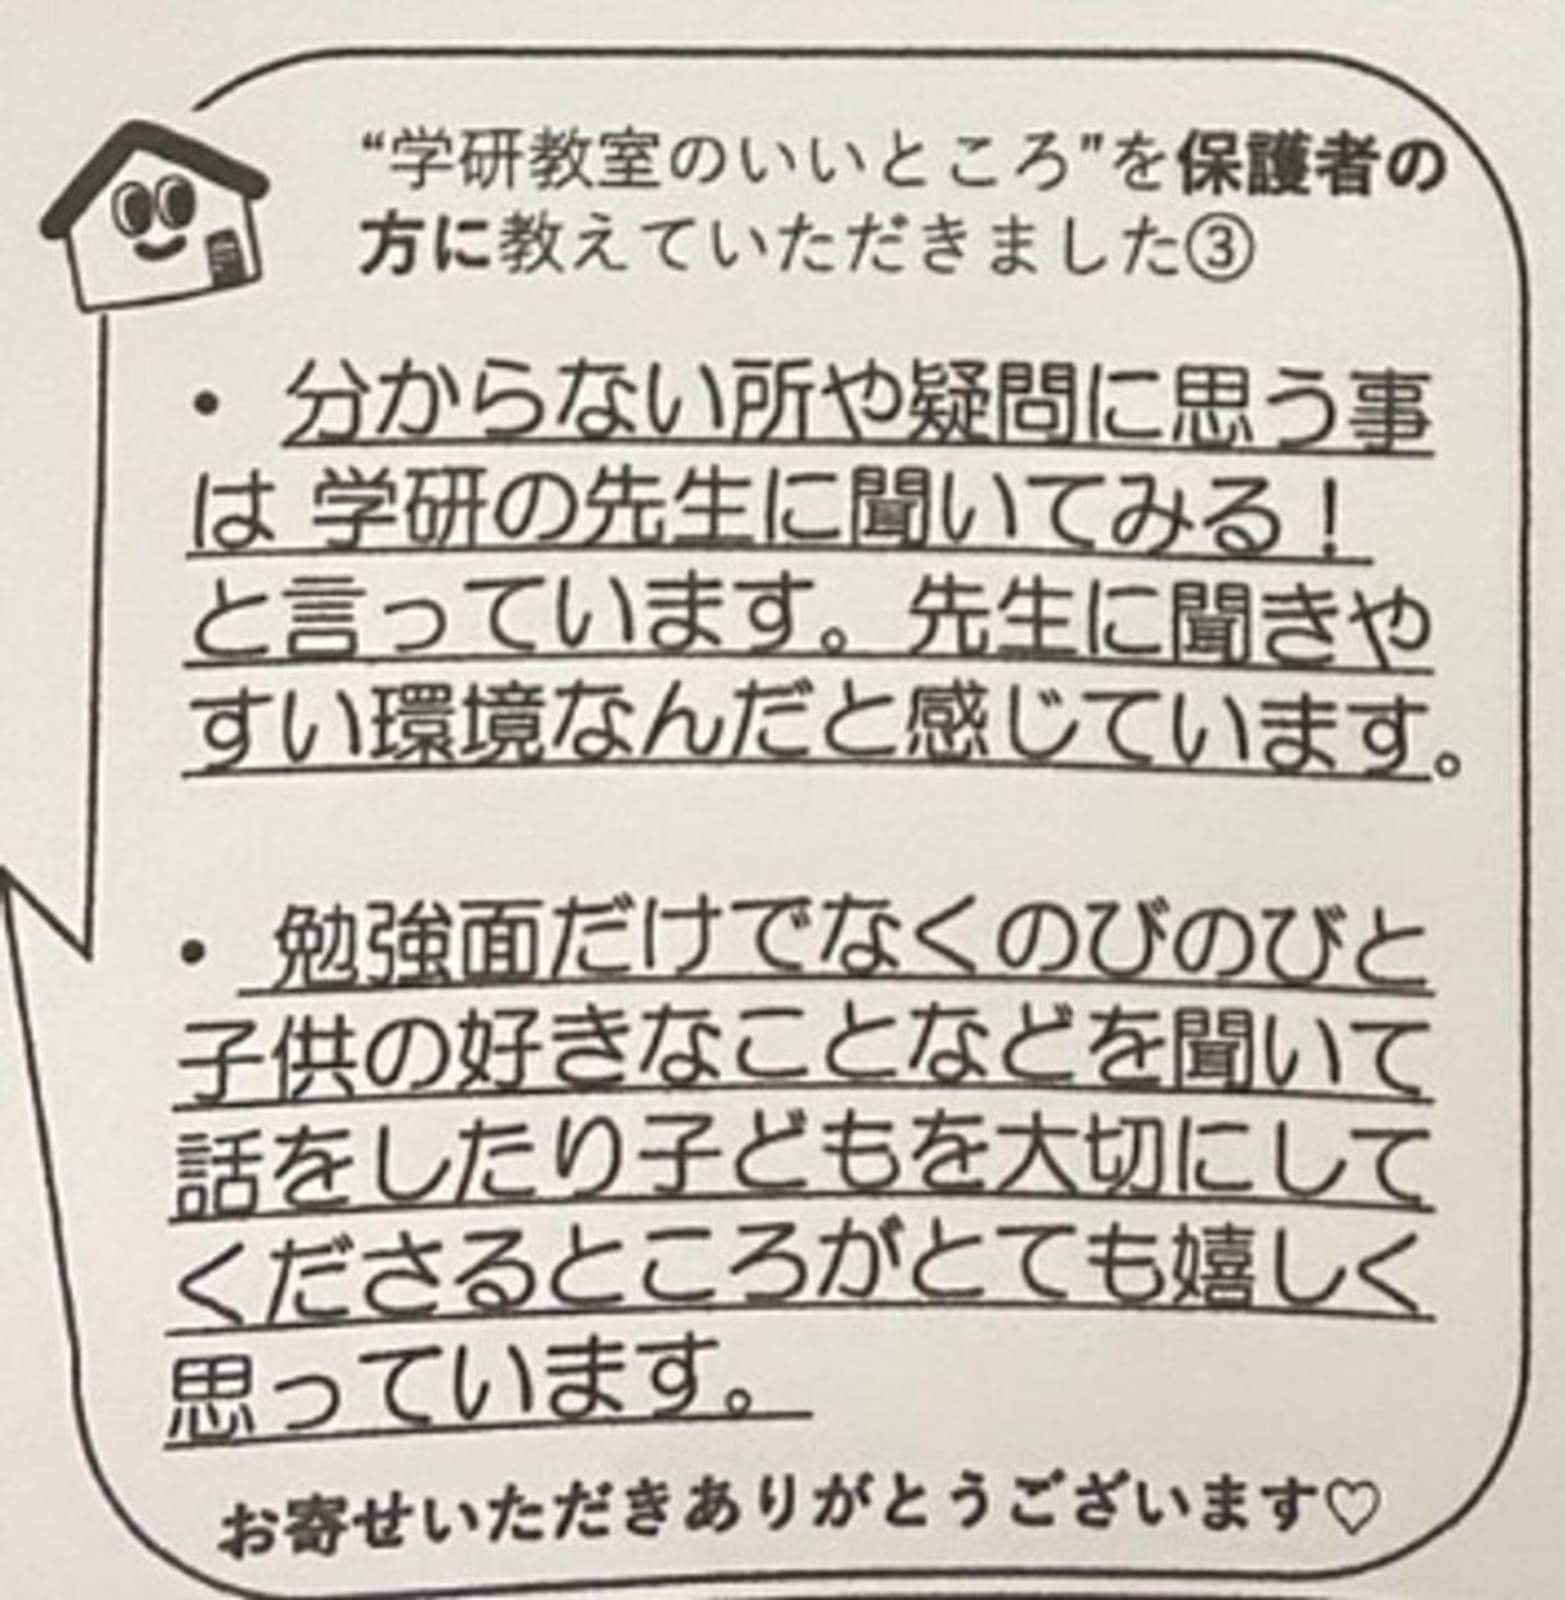 “学研教室のいいところ”を保護者の
方に教えていただきました③
・ 分からない所や疑問に思う事
は 学研の先生に聞いてみる！
と言っています。先生に聞きや
すい環境なんだと感じています。
・ 勉強面だけでなくのびのびと
子供の好きなことなどを聞いて
話をしたり子どもを大切にして
くださるところがとても嬉しく
思っています。
お寄せいただきありがとうございます♡